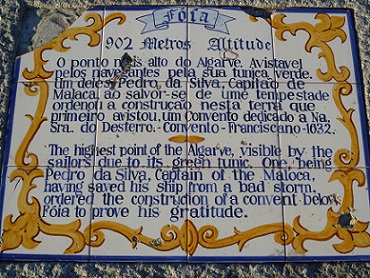 Fóia
902 Metros Altitude
O ponto mais alto do Algarve. Avistavel
pelos navegantes pela sua tunica verde.
Um deles, Pedro, da Silva, Capitão de
Malaca, ao salvar-se de uma tempestade
ordenou a construção nesta terra que
primeiro avistou, um Convento dedicado a Na.
Sra. do Desterro. Convento-Franciscano-1632.
The highest point of the Algarve, visible by the
sailors due to its green tunic. One, being
Pedro da Silva, Captain of the Maloca,
having saved his ship from a bad storm,
ordered the construdion of a convent below
Fóia to prove his gratitude.